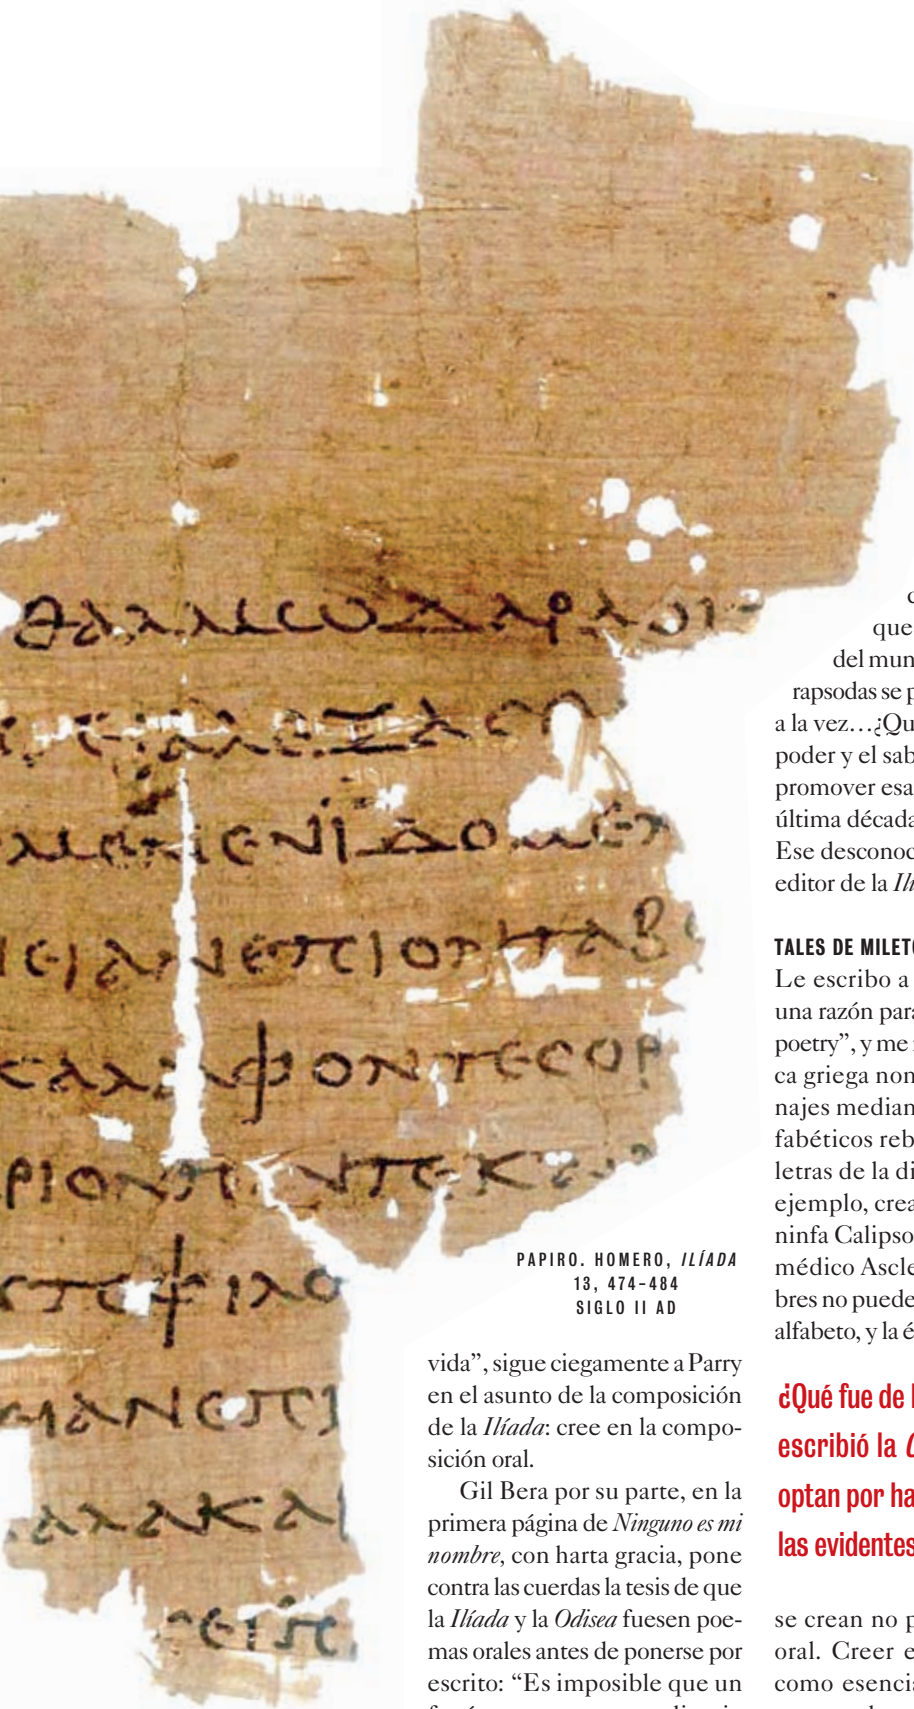 ΘΑΛΜΩΔΑΡΑΟΙ
ΕΙΑΛΕΞΑϹ
ΜΕΝΕΝΙΔΟΜΕΝ
ΕΙΑΝΕΠΙΟΝΤΑΒ
ϹΚΑΛΑΦΟΝΤΕϹΟΡ
ΡΙΟΝΗΝΤΕΚΑΙ
ΤΕΦΙΛΟ
ΙΑΝΕΠΙ
ΑΛΑΚΑ
PAPIRO. HOMERO, ILÍADA
13, 474-484
SIGLO II AD
vida”, sigue ciegamente a Parry
en el asunto de la composición
de la Ilíada: cree en la compo-
sición oral.
Gil Bera por su parte, en la
primera página de Ninguno es mi
nombre, con harta gracia, pone
contra las cuerdas la tesis de que
la Ilíada y la Odisea fuesen poe-
mas orales antes de ponerse por
escrito: “Es imposible que un
que
del mun
rapsodas se p
a la vez…¿Qu
poder y el sab
promover esa
última década
Ese desconoc
editor de la Il
TALES DE MILETO
Le escribo a
una razón para
poetry”, y me
ca griega non
najes median
fabéticos reb
letras de la di
ejemplo, crea
ninfa Calipso
médico Ascle
bres no puede
alfabeto, y la é
¿Qué fue de
escribió la
optan por ha
las evidentes
se crean no p
oral. Creer e
como esencia